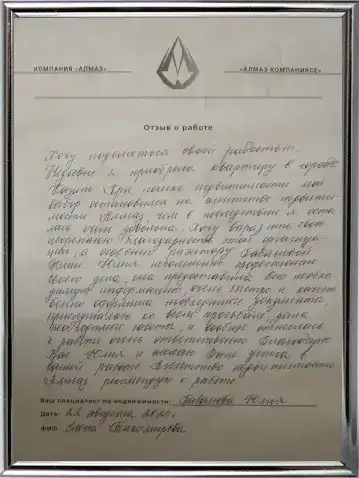 КОМПАНИЯ «АЛМАЗ»
«АЛМАЗ КОМПАНИЯСЕ»
Отзыв о работе
Хочу поделиться своей радостью.
Недавно я приобрела квартиру в городе
Казани. При поиске недвижимости мой
выбор остановился на агентстве недвижи-
мости Алмаз, чем в последствии я оста-
лась очень довольна. Хочу выразить свою
искреннюю благодарность этой организа-
ции, а особенно риэлтору
Юлии. Юлия невероятно профессионал
своего дела, она предоставила всю необхо-
димую информацию, очень быстро и качест
венно оформила необходимые документы,
прислушалась ко всем просьбам, дала
необходимые советы, и вообще отнеслась
к работе очень ответственно. Благодарю
Вас Юлия и желаю Вам успеха в
вашей работе. Агентство недвижимости
Алмаз рекомендую к работе.
Ваш специалист по недвижимости: Юлия
Дата: 22 августа 2020г
ФИО: Елена Тихомирова